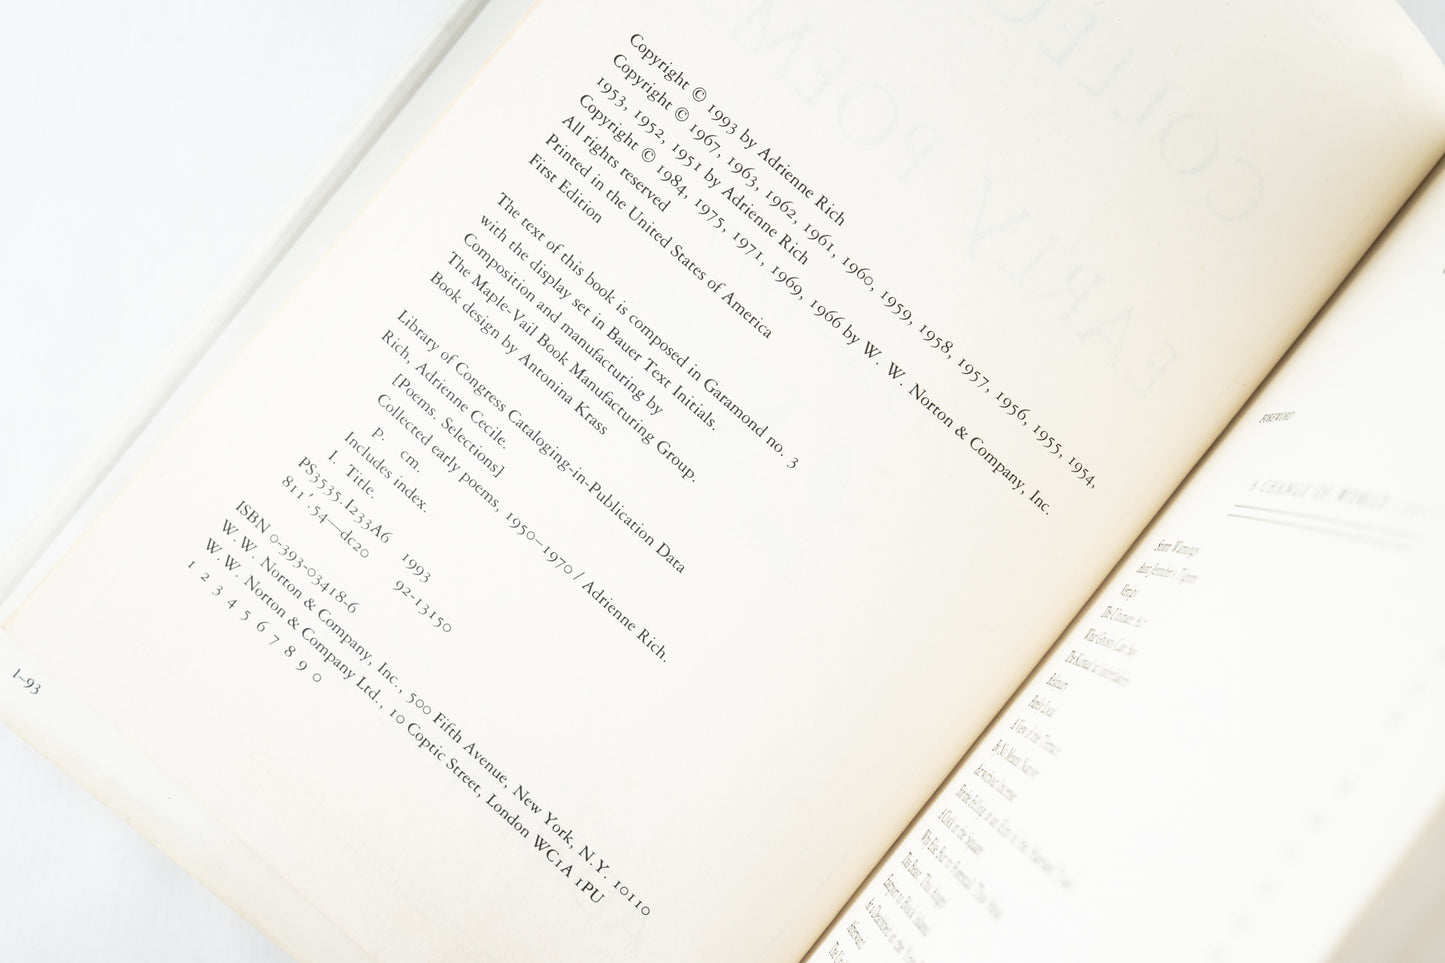 Copyright © 1993 by Adrienne Rich
Copyright © 1967, 1963, 1962, 1961, 1960, 1959, 1958, 1957, 1956, 1955, 1954,
1953, 1952, 1951 by Adrienne Rich
Copyright © 1984, 1975, 1971, 1969, 1966 by W. W. Norton & Company, Inc.
All rights reserved
Printed in the United States of America
First Edition
The text of this book is composed in Garamond no. 3
with the display set in Bauer Text Initials.
Composition and manufacturing by
The Maple-Vail Book Manufacturing Group.
Book design by Antonina Krass
Library of Congress Cataloging-in-Publication Data
Rich, Adrienne Cecile.
[Poems. Selections]
Collected early poems, 1950–1970 / Adrienne Rich.
p. cm.
Includes index.
I. Title.
PS3535.I233A6 1993
811'.54—dc20 92-13150
ISBN 0-393-03418-6
W. W. Norton & Company, Inc., 500 Fifth Avenue, New York, N.Y. 10110
W. W. Norton & Company Ltd., 10 Coptic Street, London WC1A 1PU
1 2 3 4 5 6 7 8 9 0
1–93
COLLEC
EARLY POEMS
FOREWORD
A CHANGE OF WORLD
Storm Warnings
Aunt Jennifer's Tigers
Vertigo
The Ultimate Act
What Ghosts Can Say
The Kursaal at Interlaken
Reliquary
Purely Local
A View of the Terrace
By No Means Native
Air without Incense
For the Felling of an Elm in the Harvard Yard
A Clock in the Square
Why Else But to Forestall This Hour
This Beast, This Angel
Eastport to Block Island
At a Deathbed in the
Afterward